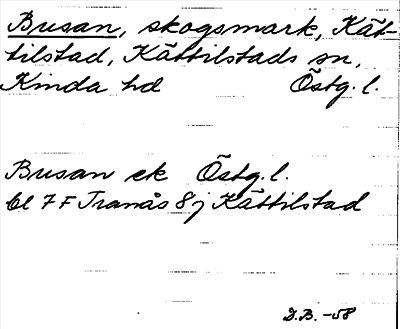 Busan, skogsmark, Kät-
tilstad, Kättilstads sn,
Kinda hd Östg. l.
Busan ek Östg. l.
bl 7 F Tranås 8 j Kättilstad
D.B. -58